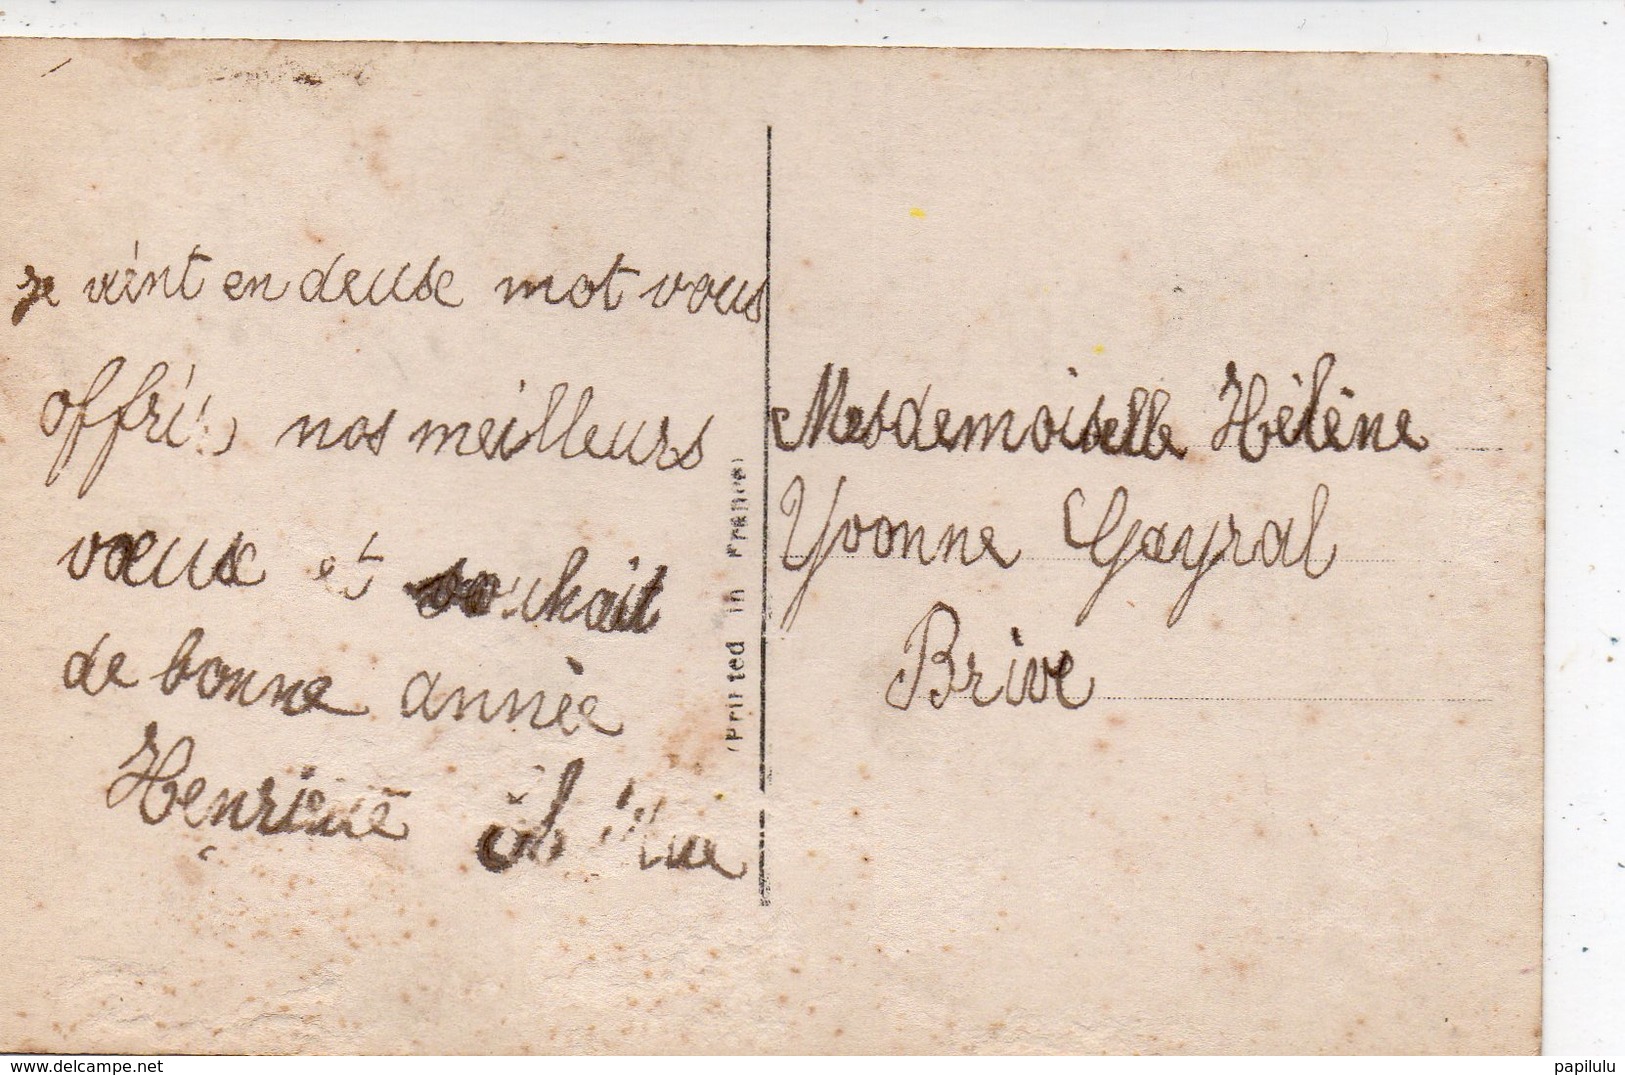 je vint en deuse mot vous
offrir nos meilleurs
voeux et souhait
de bonne année
(Printed in France)
Mesdemoiselle Hélène
Yvonne Gayral
Brive
delcampe.net
papilulu